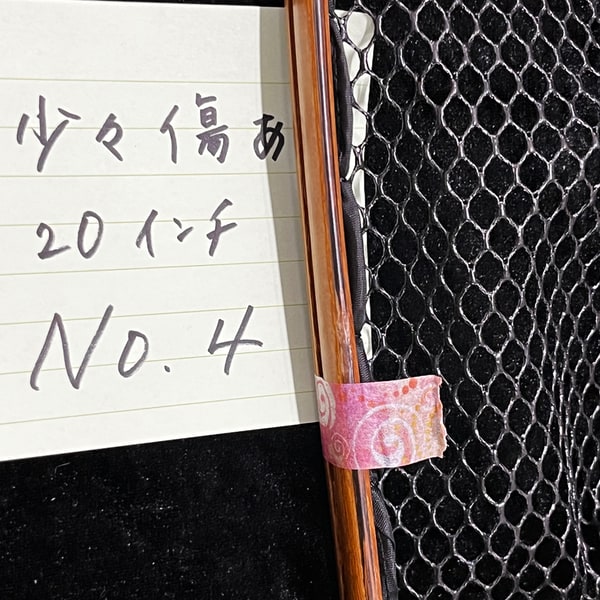 少々傷あ
20インチ
No. 4